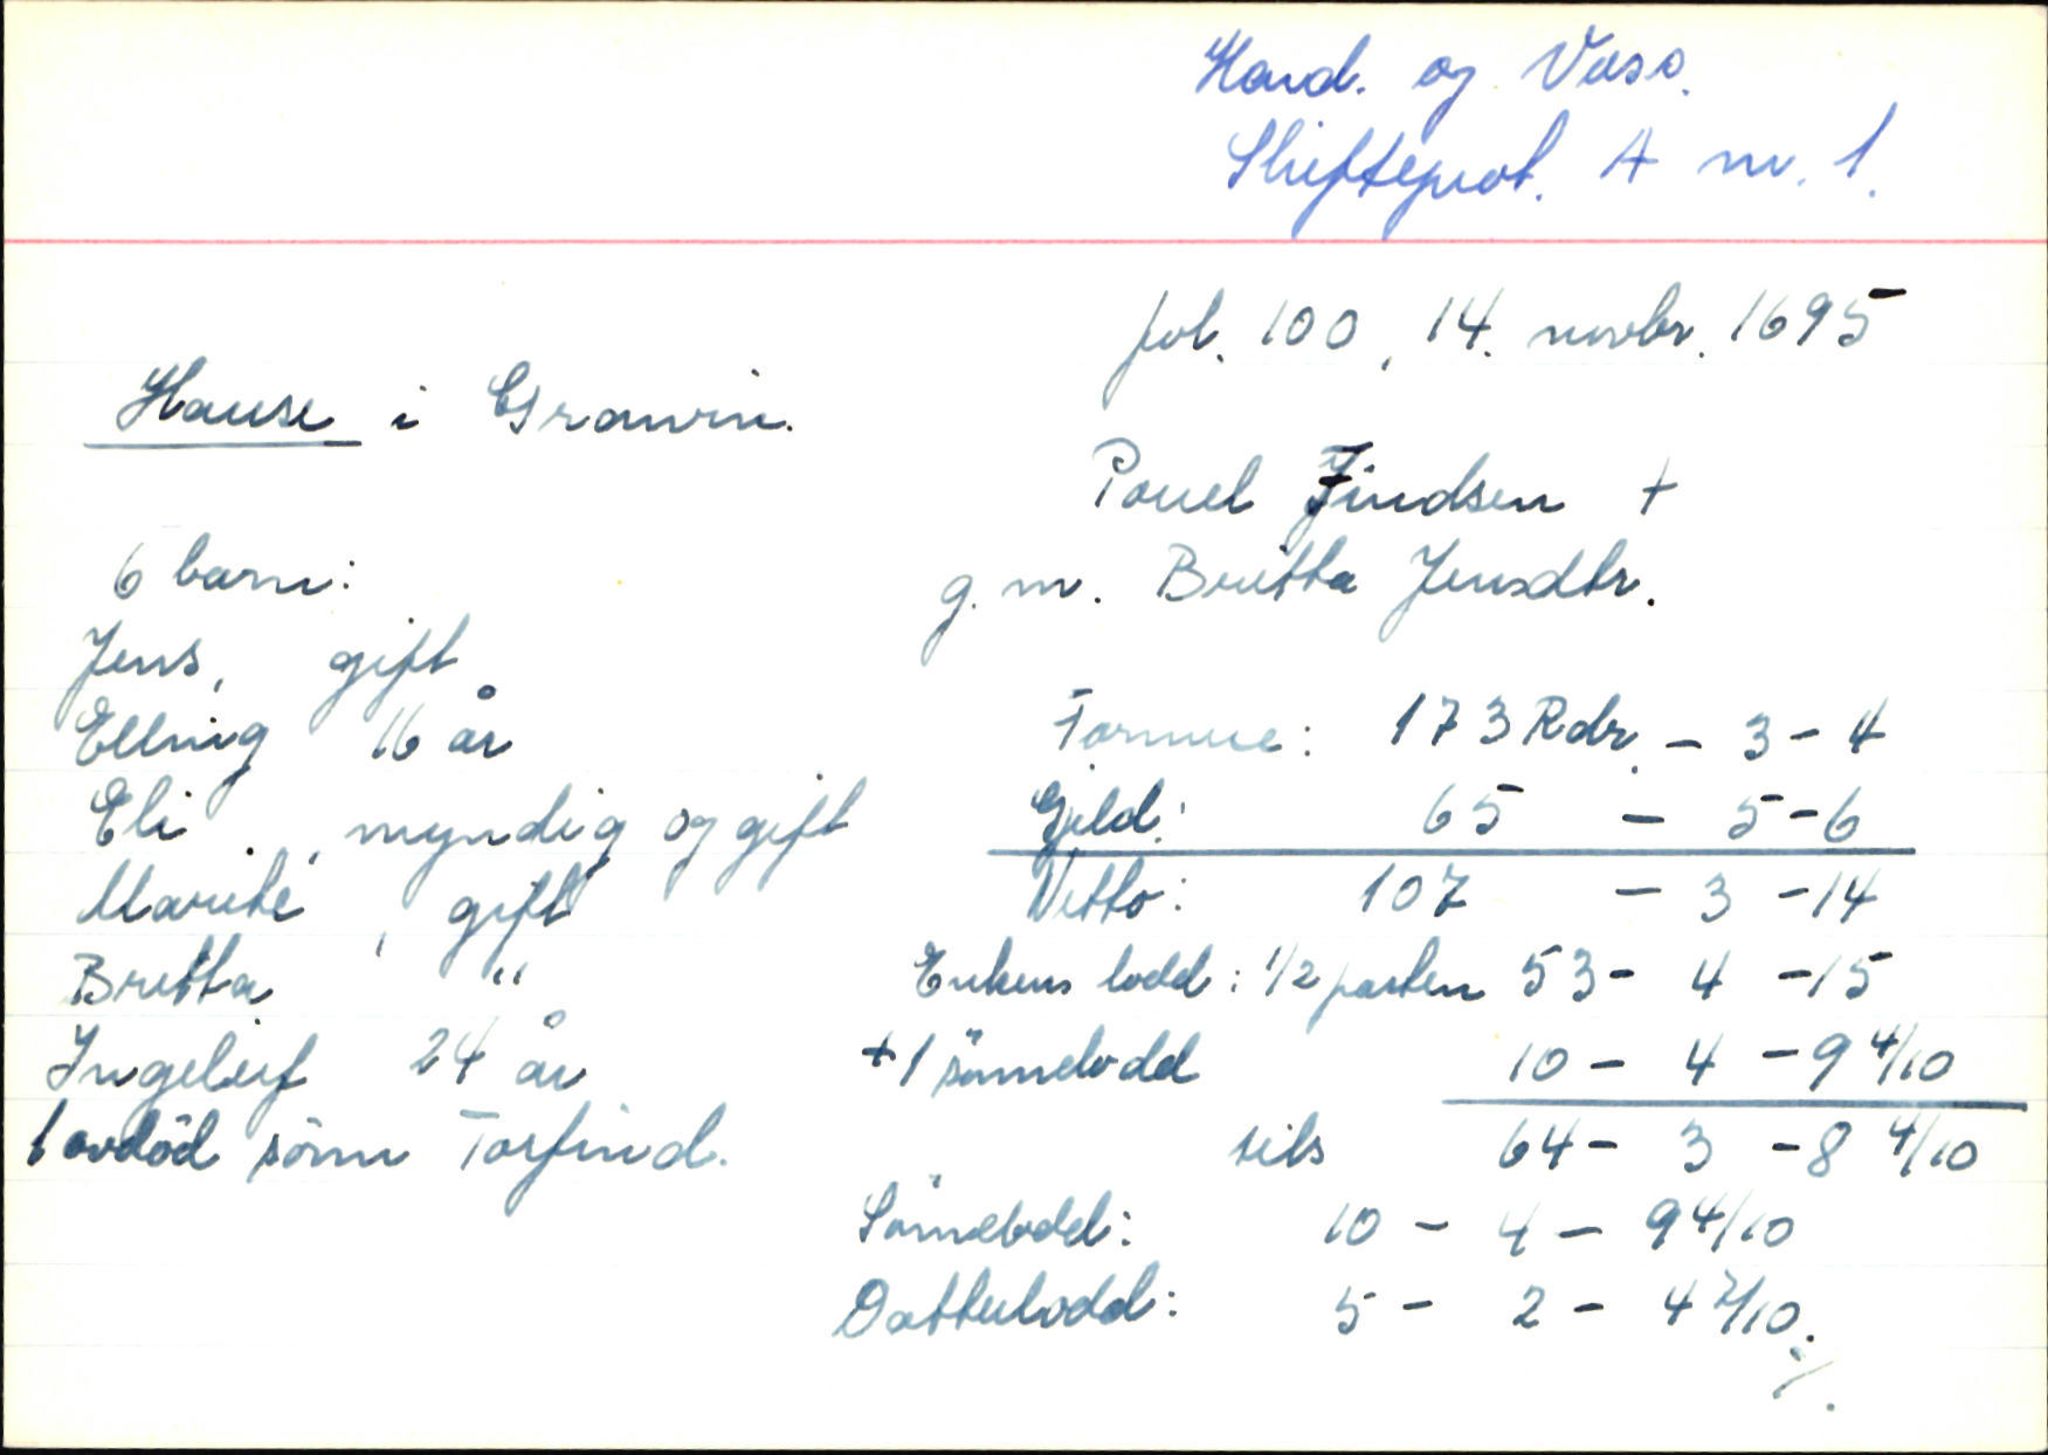 Hard. og Voss.
Skifteprot. A nr. 1.
fol. 100, 14. novbr. 1695
Hause i Granvin.
Pouel Findsen +
g. m. Britta Jensdtr.
6 barn:
Jens, gift
Elling 16 år
Eli, myndig og gift
Marite, gift
Britta "
Ingeleif 24 år
1 avdöd sönn Torfind.
Formue: 173 Rdr. - 3 - 4
Gjeld: 65 - 5 - 6
Netto: 107 - 3 - 14
Enkens lodd: 1/2 parten 53 - 4 - 15
+ 1 sönnelodd 10 - 4 - 9 4/10
tils 64 - 3 - 8 4/10
Sönnelodd: 10 - 4 - 9 4/10
Datterlodd: 5 - 2 - 4 7/10.